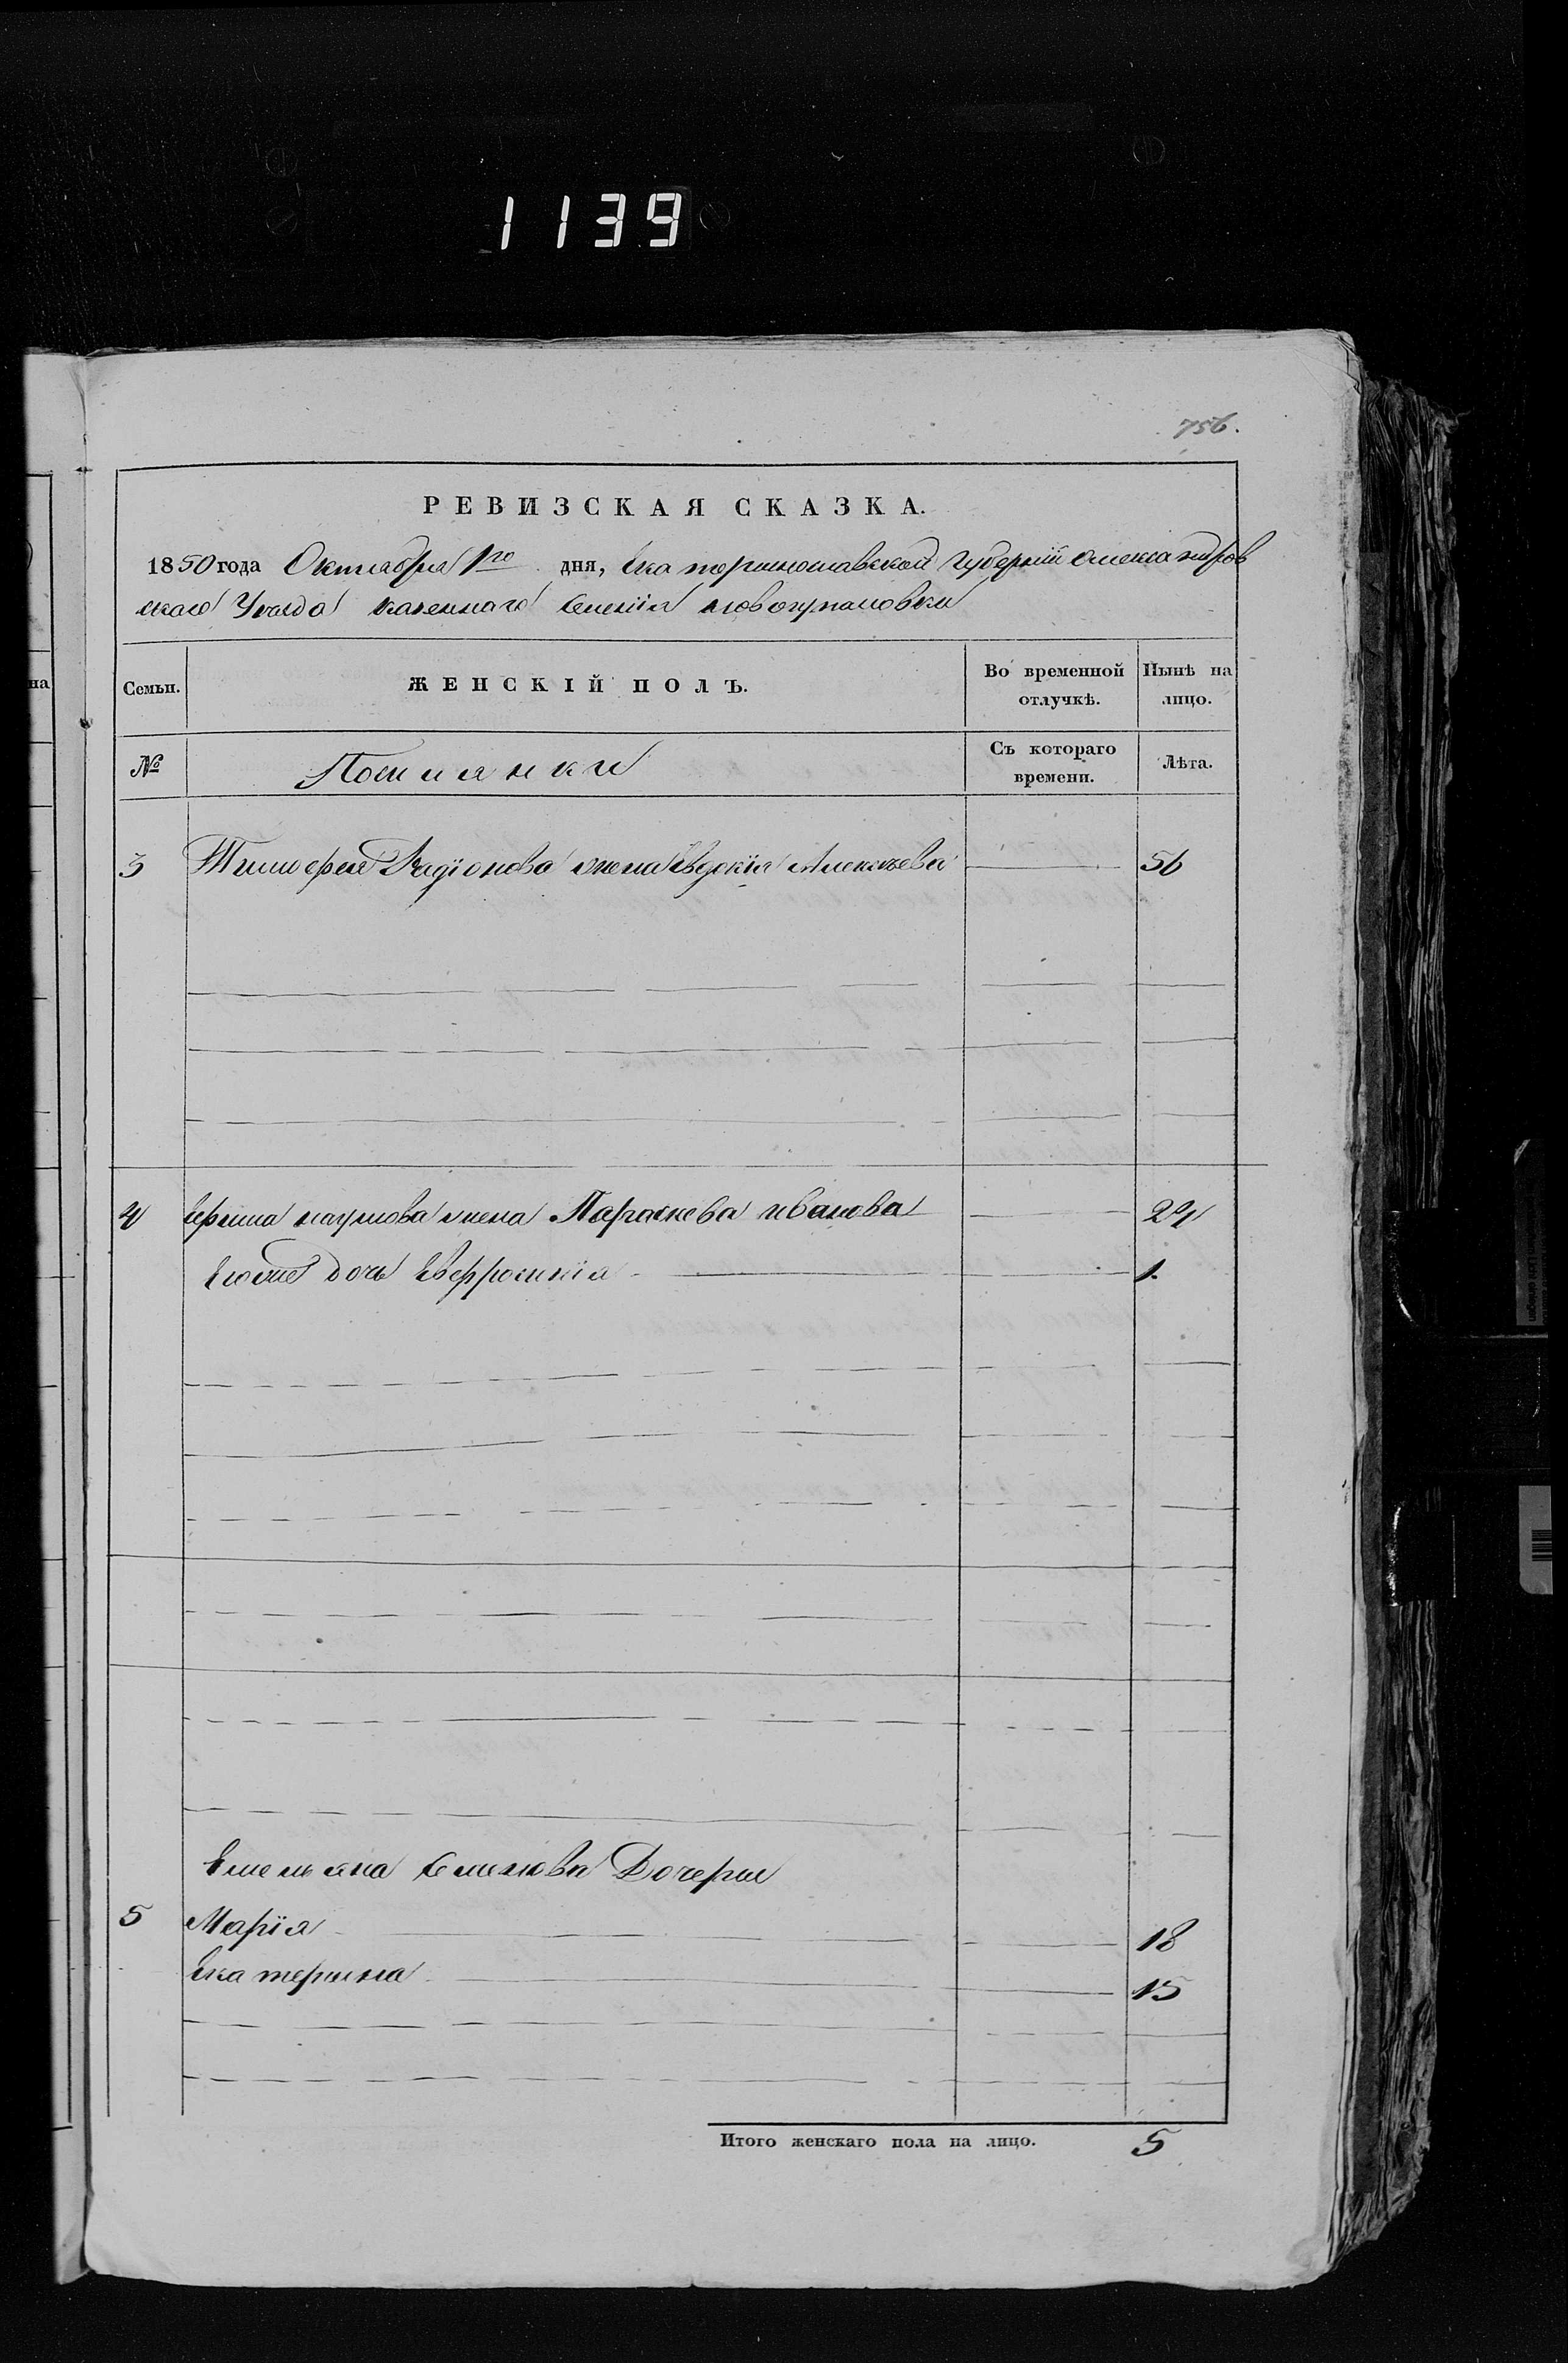 1139
756.
РЕВИЗСКАЯ СКАЗКА.
1850 года Октября 1го дня, Екатеринославской губернии Александров
скаго Уезда казеннаго селения
Семьи. ЖЕНСКІЙ ПОЛЪ. Во временной отлучкѣ. Нынѣ на лицо.
№ Съ котораго времени. Лѣта.
3 Тимофея Радіонова жена Евдокія Алексѣева 56
4 наумова жена Параскева иванова 24
дочь Евфросинія 1.
Емельяна Семинова Дочери
5 Марія 18
Екатерина 15
Итого женскаго пола на лицо. 5